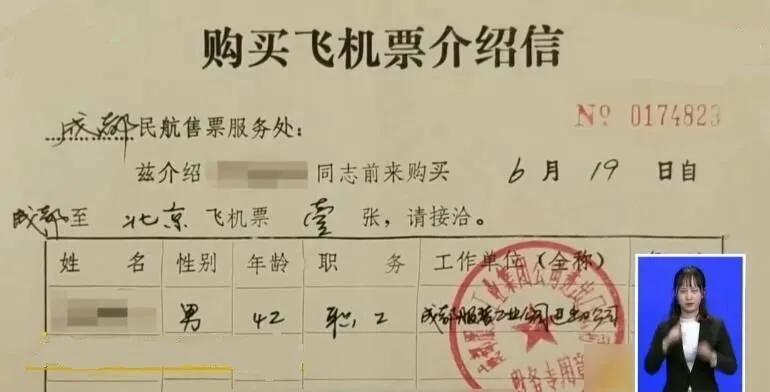 购买飞机票介绍信
№ 0174823
成都民航售票服务处：
兹介绍 同志前来购买 6月19日自
成都至北京飞机票壹张，请接洽。
姓名 性别 年龄 职务 工作单位（全称）
男 42 职工 成都服装工业公司进出口公司
业务专用章